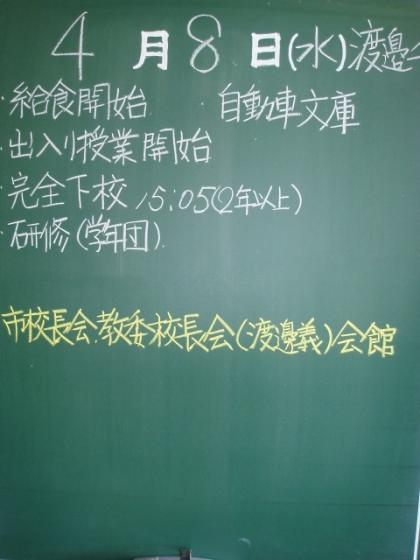 4月8日(水)渡邊
・給食開始 ・自動車文庫
・出入り授業開始
・完全下校 15:05(2年以上)
・研修(学年団)
市校長会.教委校長会(渡邊義)会館